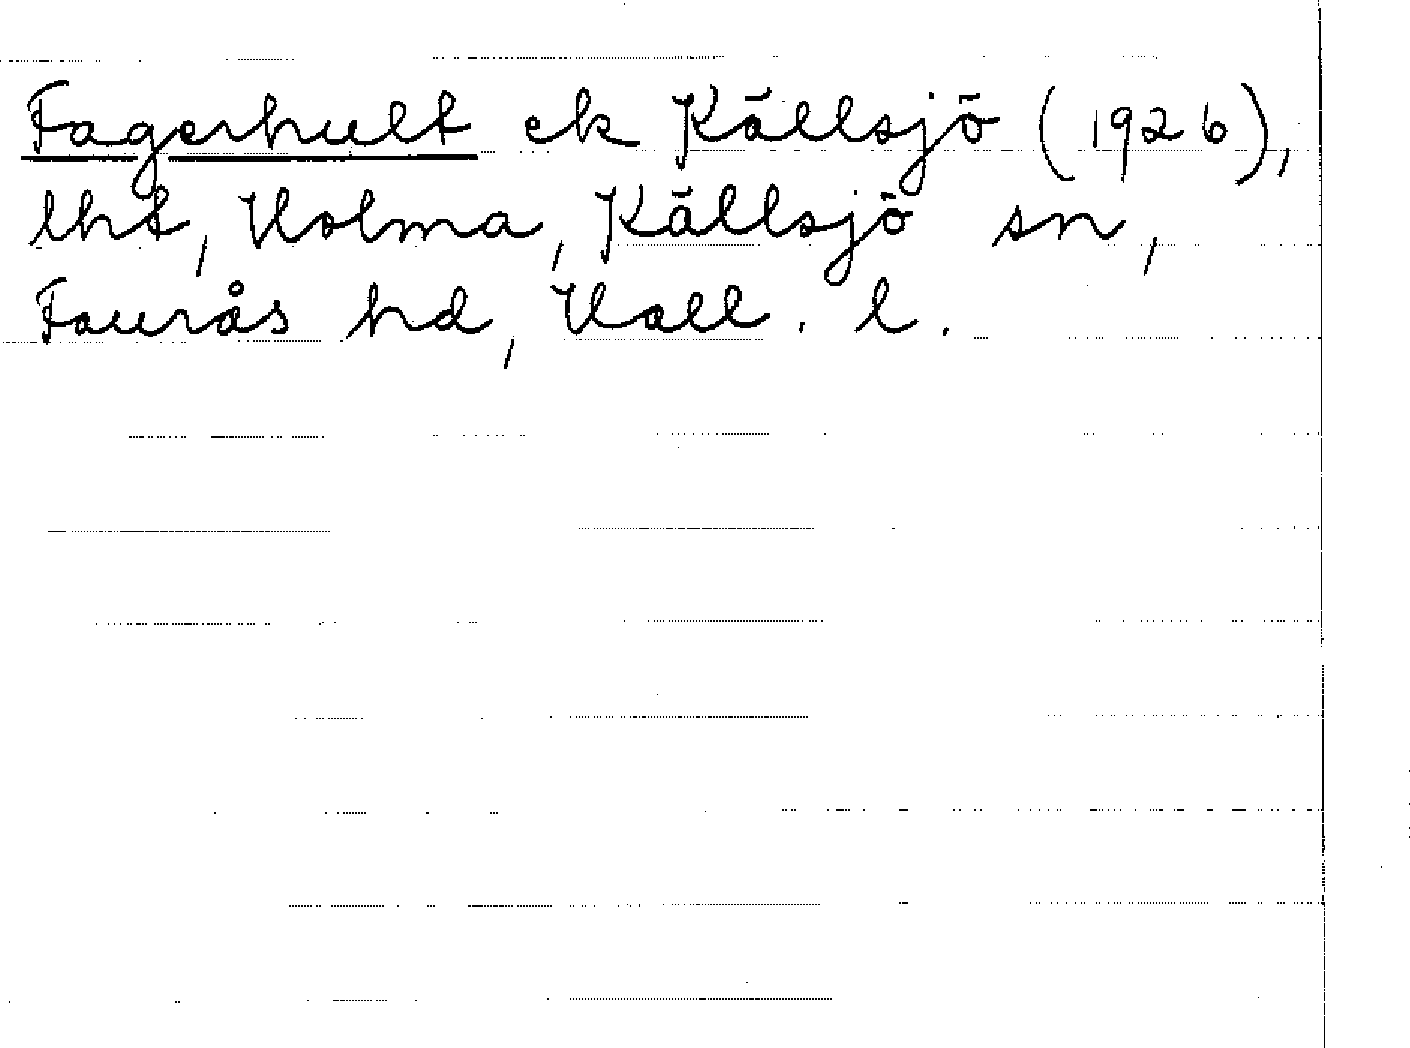 Fagerhult ek Källsjö (1926),
lht, Holma, Källsjö sn,
Faurås hd, Hall. l.